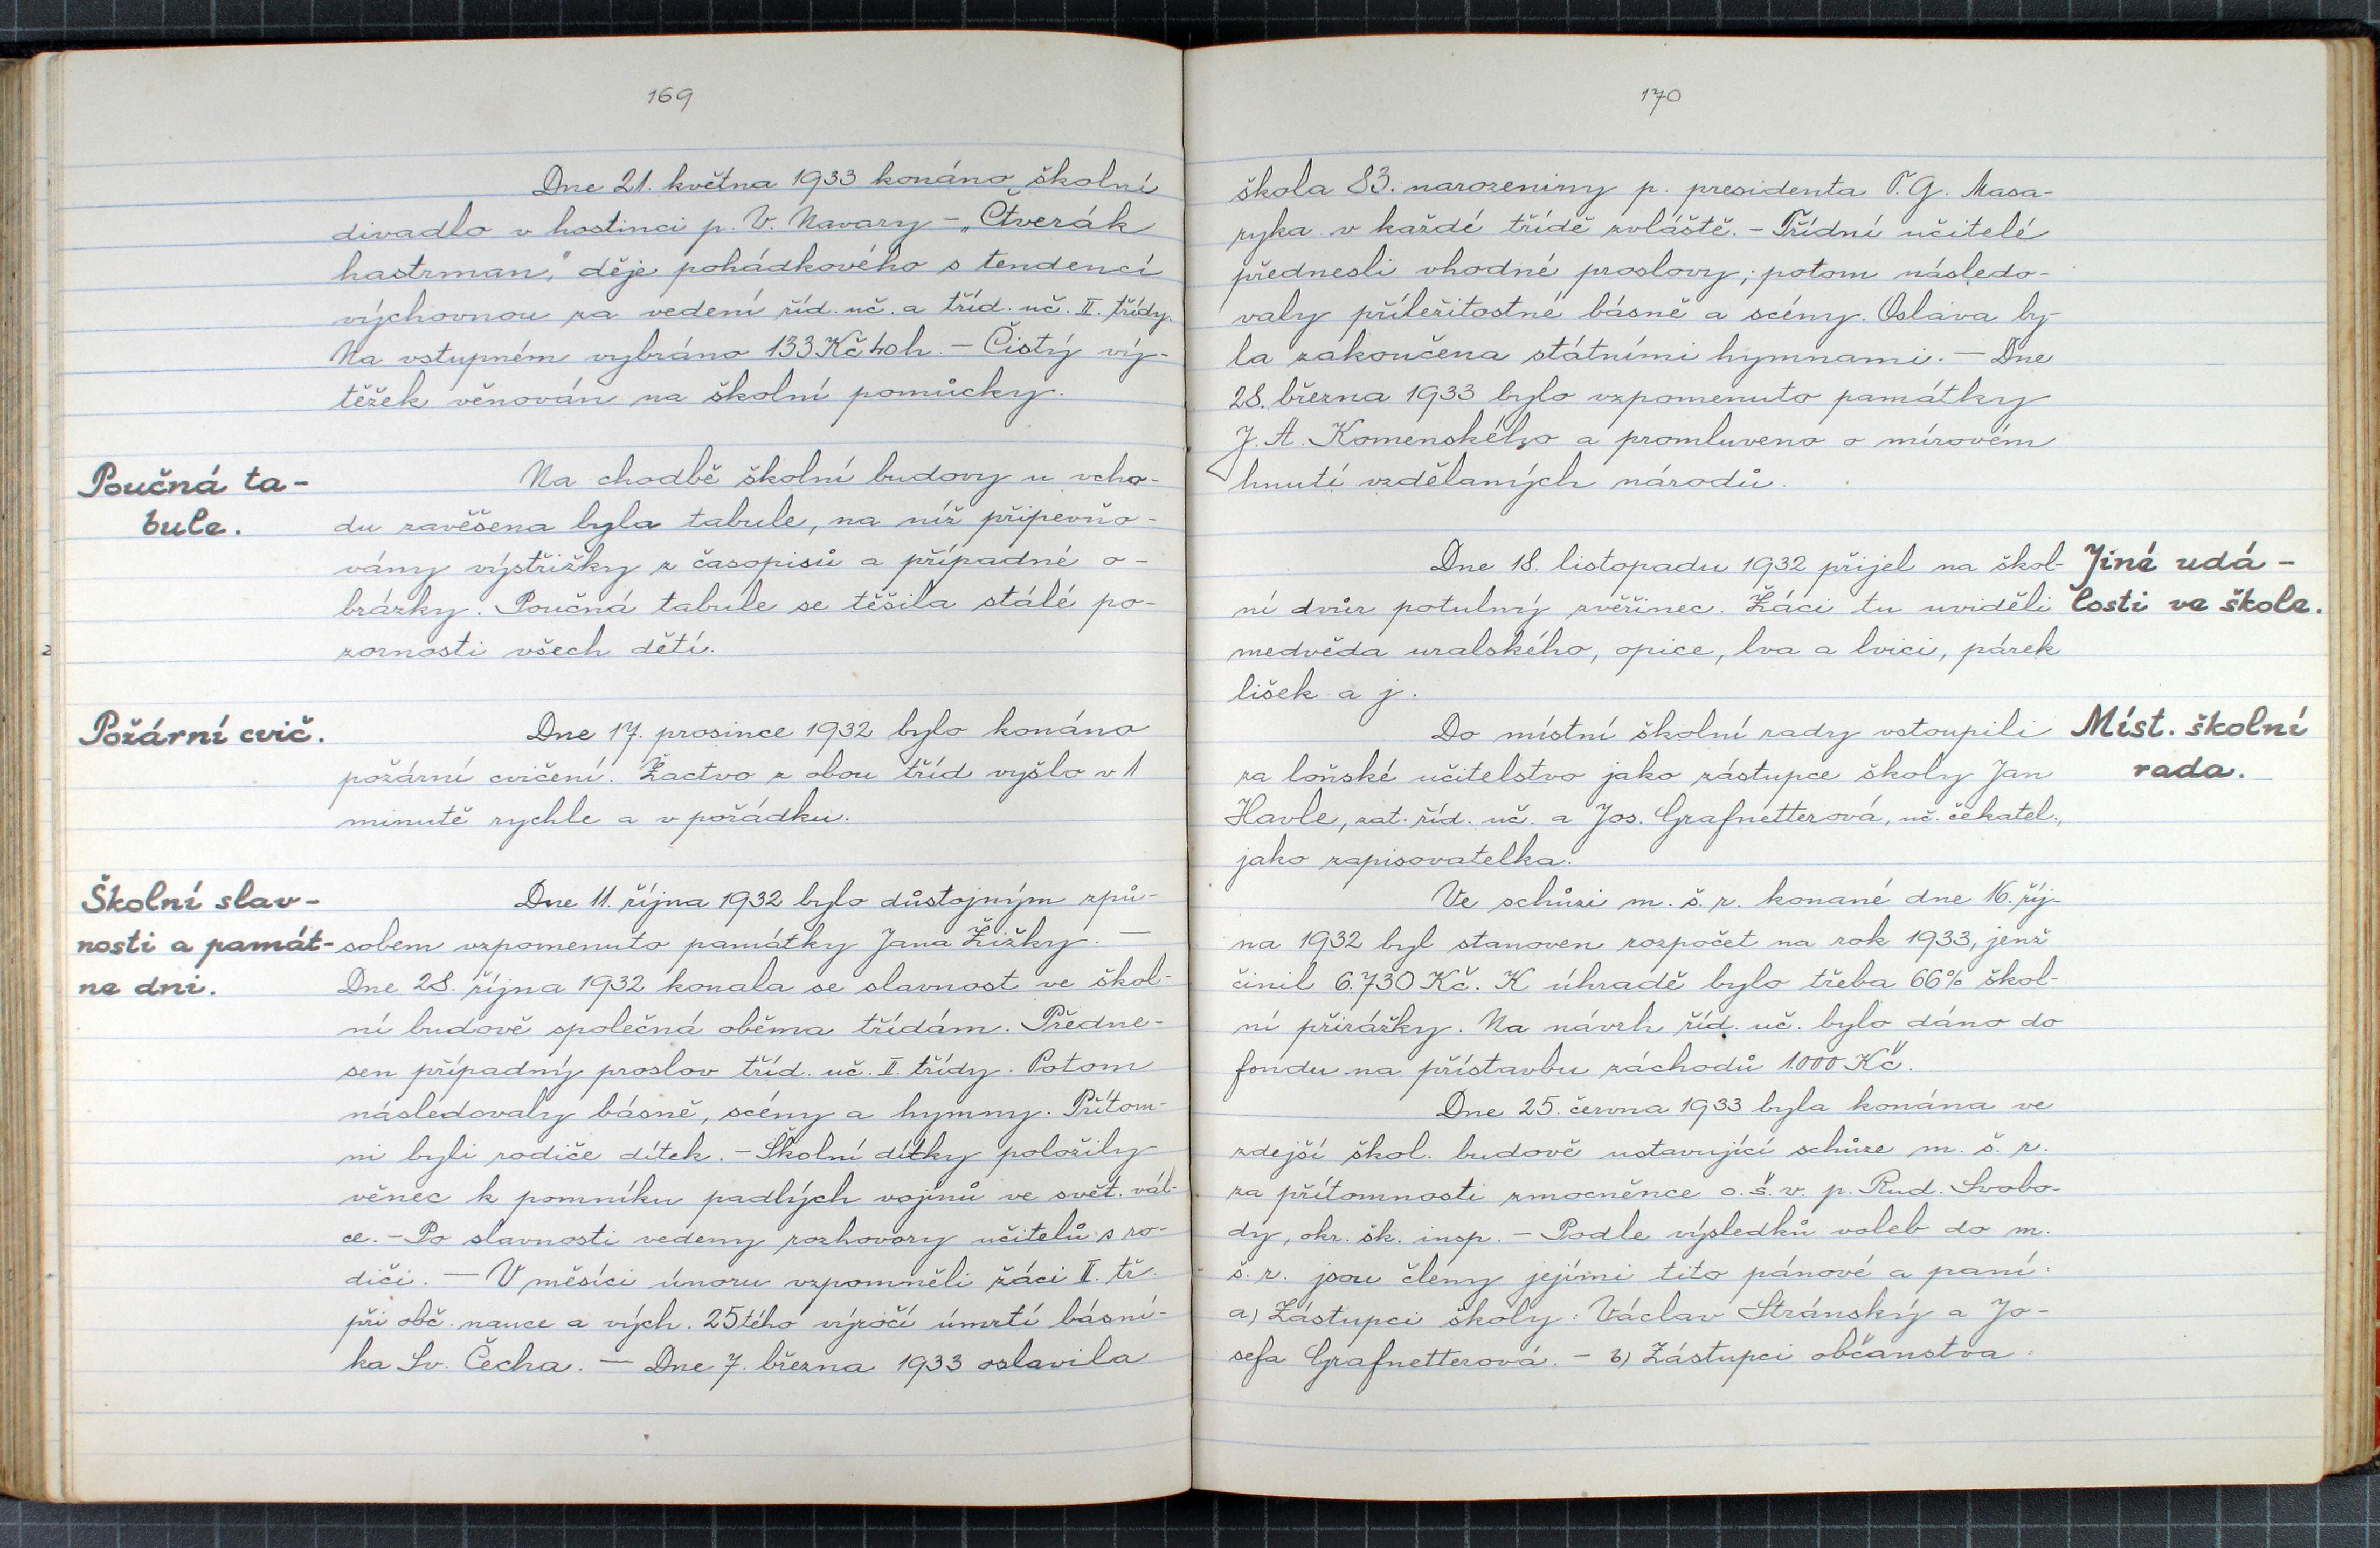 169
Dne 21. května 1933 konáno školní
divadlo v hostinci p. V. Navary - „Čtverák
hastrman," děje pohádkového s tendencí
výchovnou za vedení říd. uč. a tříd. uč. II. třídy.
Na vstupném vybráno 133 Kč 40 h. - Čistý vý-
těžek věnován na školní pomůcky.
Poučná ta-
bule.
Na chodbě školní budovy u vcho-
du zavěšena byla tabule, na níž připevňo-
vány výstřižky z časopisů a případné o-
brázky. Poučná tabule se těšila stálé po-
zornosti všech dětí.
Požární cvič.
Dne 17. prosince 1932 bylo konáno
požární cvičení. Žactvo z obou tříd vyšlo v 1
minutě rychle a v pořádku.
Školní slav-
nosti a památ-
ne dni.
Dne 11. října 1932 bylo důstojným způ-
sobem vzpomenuto památky Jana Žižky. -
Dne 28. října 1932 konala se slavnost ve škol-
ní budově společná oběma třídám. Předne-
sen případný proslov tříd. uč. II. třídy. Potom
následovaly básně, scény a hymny. Přítom-
ni byli rodiče dítek. - Školní dítky položily
věnec k pomníku padlých vojínů ve svět. vál-
ce. - Po slavnosti vedeny rozhovory učitelů s ro-
diči. - V měsíci únoru vzpomněli žáci II. tř.
při obč. nauce a vých. 25tého výročí úmrtí básní-
ka Sv. Čecha. - Dne 7. března 1933 oslavila
170
škola 83. narozeniny p. presidenta T. G. Masa-
ryka v každé třídě zvláště. - Třídní učitelé
přednesli vhodné proslovy; potom následo-
valy příležitostné básně a scény. Oslava by-
la zakončena státními hymnami. - Dne
28. března 1933 bylo vzpomenuto památky
J. A. Komenského a promluveno o mírovém
hnutí vzdělaných národů.
Jiné udá-
losti ve škole.
Dne 18. listopadu 1932 přijel na škol-
ní dvůr potulný zvěřinec. Žáci tu uviděli
medvěda uralského, opice, lva a lvici, párek
lišek a j.
Míst. školní
rada.
Do místní školní rady vstoupili
za loňské učitelstvo jako zástupce školy Jan
Havle, zat. říd. uč. a Jos. Grafnetterová, uč. čekatel.,
jako zapisovatelka.
Ve schůzi m. š. r. konané dne 16. říj-
na 1932 byl stanoven rozpočet na rok 1933, jenž
činil 6.730 Kč. K úhradě bylo třeba 66% škol-
ní přirážky. Na návrh říd. uč. bylo dáno do
fondu na přístavbu záchodů 1.000 Kč.
Dne 25. června 1933 byla konána ve
zdejší škol. budově ustavující schůze m. š. r.
za přítomnosti zmocněnce o. š. v. p. Rud. Svobo-
dy, okr. šk. insp. - Podle výsledků voleb do m.
š. r. jsou členy jejími tito pánové a paní:
a) Zástupci školy: Václav Stránský a Jo-
sefa Grafnetterová. - b) Zástupci občanstva: